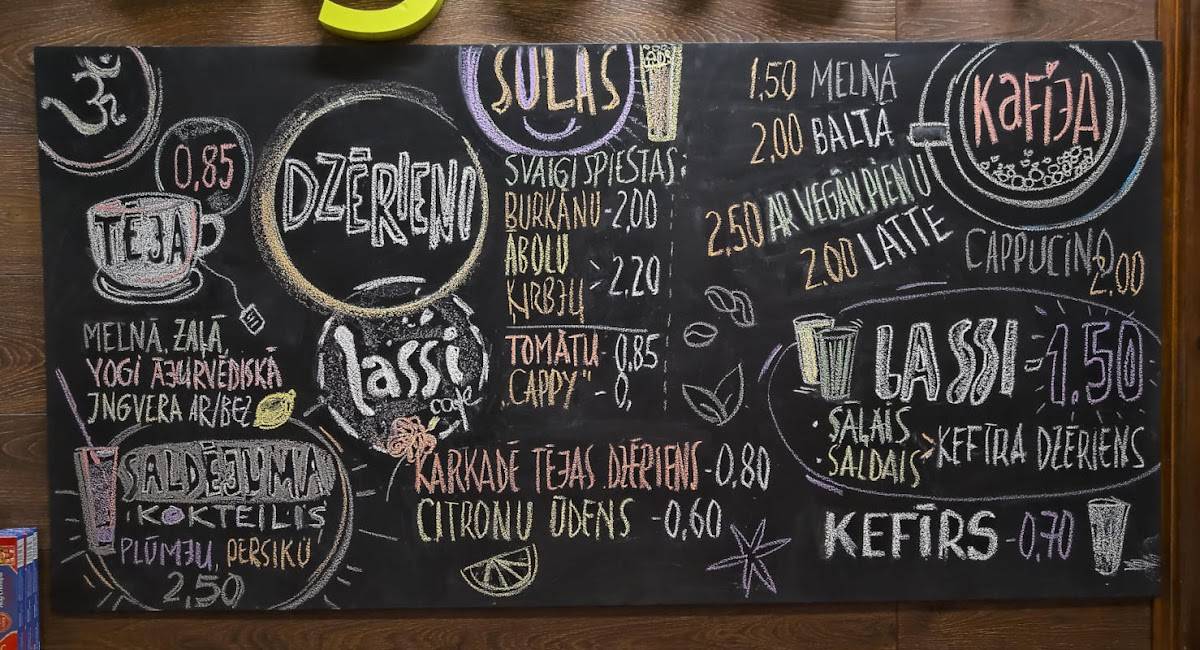 ॐ
0,85
TĒJA
MEĻNĀ, ZAĻĀ,
YOGI ĀJURVĒDISKĀ
INGVERA AR/BEZ
SALDĒJUMA
KOKTEILIS
PLŪMJU, PERSIKU
2,50
DZĒRIENI
lassi
cafe
SULAS
SVAIGI SPIESTAS:
BURKĀNU - 2,00
ĀBOLU
ĶIRBJU - 2,20
TOMĀTU - 0,85
"CAPPY" - 0,
KARKADĒ TĒJAS DZĒRIENS - 0,80
CITRONU ŪDENS - 0,60
KAFIJA
1,50 MELNĀ
2,00 BALTĀ
2,50 AR VEGĀN PIENU
2.00 LATTE
CAPPUCINO 2,00
LASSI = 1.50
SAĻAIS
SALDAIS > KEFĪRA DZĒRIENS
KEFĪRS - 0,70